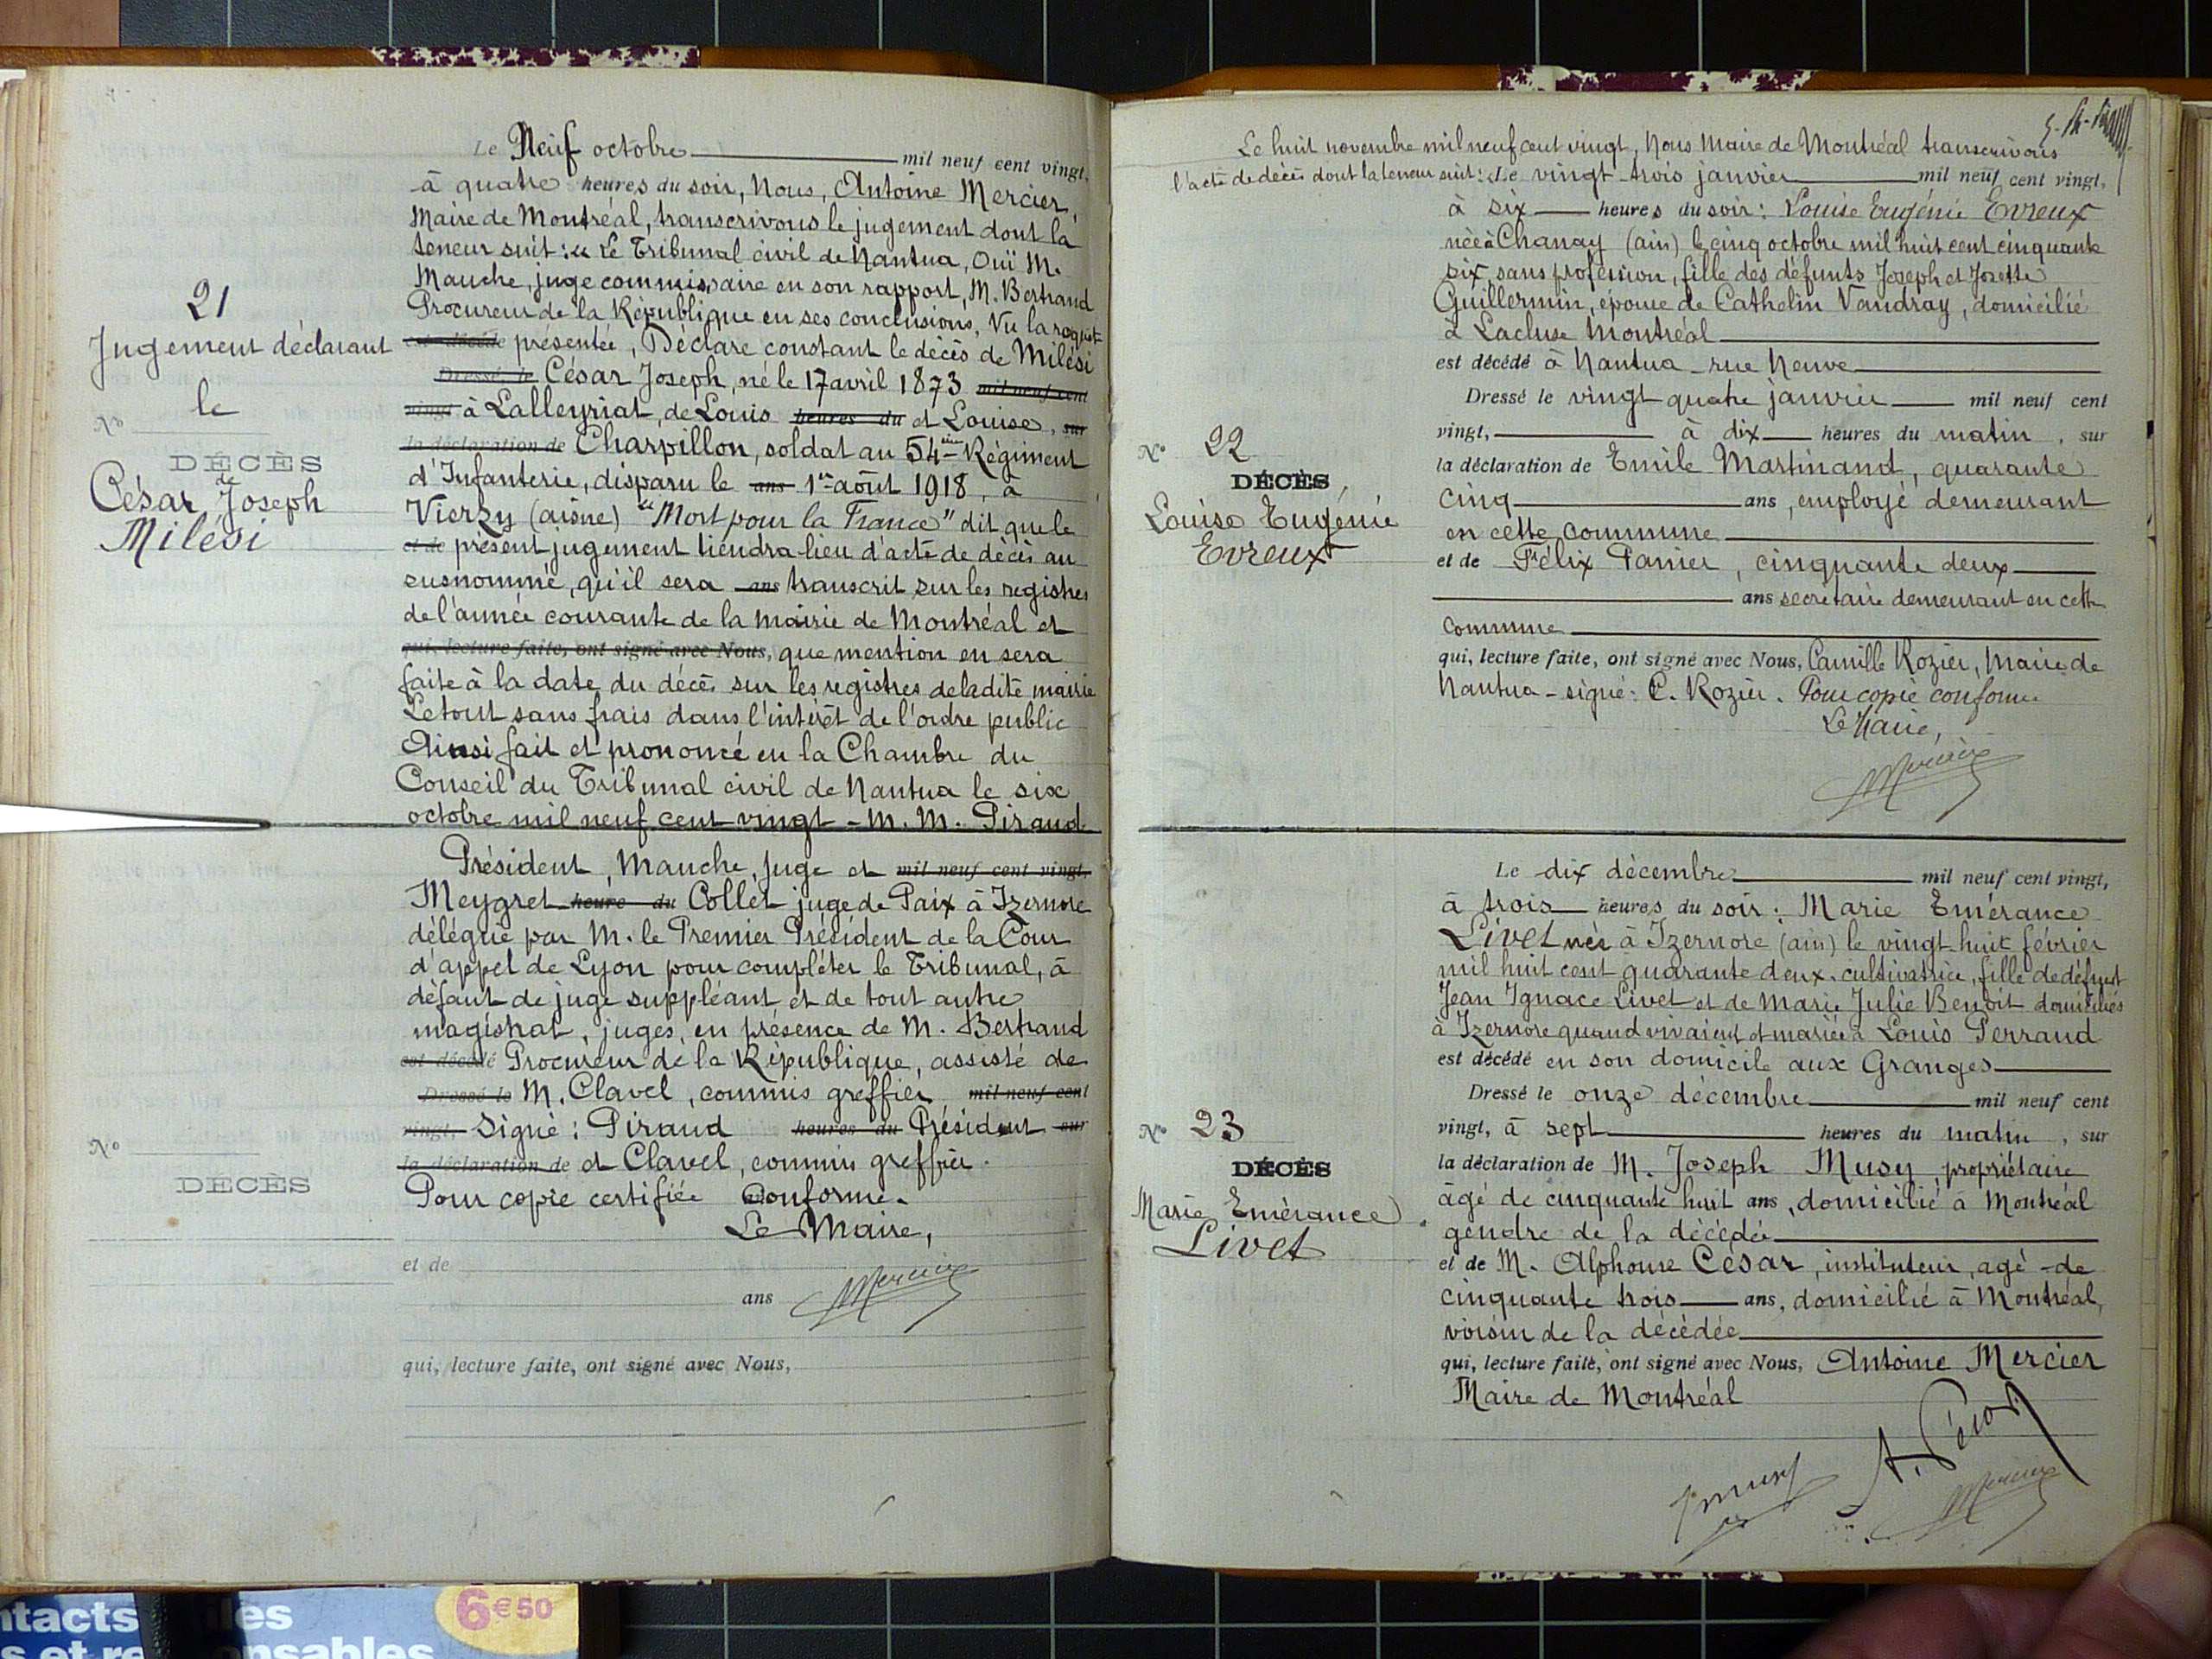 Le Neuf octobre mil neuf cent vingt,
à quatre heures du soir, Nous, Antoine Mercier,
Maire de Montréal, transcrivons le jugement dont la
teneur suit : « Le Tribunal civil de Nantua, Ouï M.
Mauche, juge commissaire en son rapport, M. Bertrand
Procureur de la République en ses conclusions, Vu la requête
est décédé présentée, Déclare constant le décès de Milési
Dressé, le César Joseph, né le 17 avril 1873 mil neuf cent
vingt à Lalleyriat, de Louis heures du et Louise, sur
la déclaration de Charpillon, soldat au 54ème Régiment
d'Infanterie, disparu le ans 1er août 1918, à
Vierzy (aisne) "Mort pour la France" dit que le
et de présent jugement tiendra lieu d'acte de décès au
susnommé, qu'il sera ans transcrit sur les registres
de l'année courante de la mairie de Montréal et
qui, lecture faite, ont signé avec Nous, que mention en sera
faite à la date du décès sur les registres de ladite mairie
Le tout sans frais dans l'intérêt de l'ordre public
Ainsi fait et prononcé en la Chambre du
Conseil du Tribunal civil de Nantua le six
octobre mil neuf cent vingt - M. M. Piraud
21
Jugement déclarant
le
No
DÉCÈS
de
César Joseph
Milési
Président, Mauche, Juge et mil neuf cent vingt,
Meygret heure du Collet juge de Paix à Izernore
délégué par M. le Premier Président de la Cour
d'appel de Lyon pour compléter le Tribunal, à
défaut de juge suppléant et de tout autre
magistrat, juges, en présence de M. Bertrand
est décédé Procureur de la République, assisté de
Dressé le M. Clavel, commis greffier mil neuf cent
vingt, Signé : Piraud heures du Président sur
la déclaration de et Clavel, commis greffier.
Pour copie certifiée Conforme.
Le Maire,
et de
ans Mercier
qui, lecture faite, ont signé avec Nous,
No
DÉCÈS
Le huit novembre mil neuf cent vingt, Nous Maire de Montréal transcrivons
l'acte de décès dont la teneur suit : Le vingt-trois janvier mil neuf cent vingt,
à six heures du soir : Louise Eugénie Evreux
née à Chanay (ain) le cinq octobre mil huit cent cinquante
six, sans profession, fille des défunts Joseph et Josette
Guillermin, épouse de Cathelin Vandray, domicilié
à Lacluse Montréal
est décédé à Nantua rue Neuve
Dressé le vingt quatre janvier mil neuf cent
vingt, à dix heures du matin, sur
la déclaration de Emile Martinand, quarante
cinq ans, employé demeurant
en cette commune
et de Félix Panier, cinquante deux
ans secrétaire demeurant en cette
commune
qui, lecture faite, ont signé avec Nous, Camille Rozier, Maire de
Nantua - signé : C. Rozier. Pour copie conforme
Le Maire,
Mercier
No 22
DÉCÈS
Louise Eugénie
Evreux
Le dix décembre mil neuf cent vingt,
à trois heures du soir : Marie Emérance
Livet née à Izernore (ain) le vingt-huit février
mil huit cent quarante deux, cultivatrice, fille de défunt
Jean Ignace Livet et de Marie Julie Benoît domiciliés
à Izernore quand vivaient et mariée à Louis Perraud
est décédé en son domicile aux Granges
Dressé le onze décembre mil neuf cent
vingt, à sept heures du matin, sur
la déclaration de M. Joseph Musy propriétaire
âgé de cinquante huit ans, domicilié à Montréal
gendre de la décédée
et de M. Alphonse César, instituteur, agé de
cinquante trois ans, domicilié à Montréal,
voisin de la décédée
qui, lecture faite, ont signé avec Nous, Antoine Mercier
Maire de Montréal
No 23
DÉCÈS
Marie Emérance
Livet
J Musy
Mercier
ntacts
es
6€50
s et re
nsables